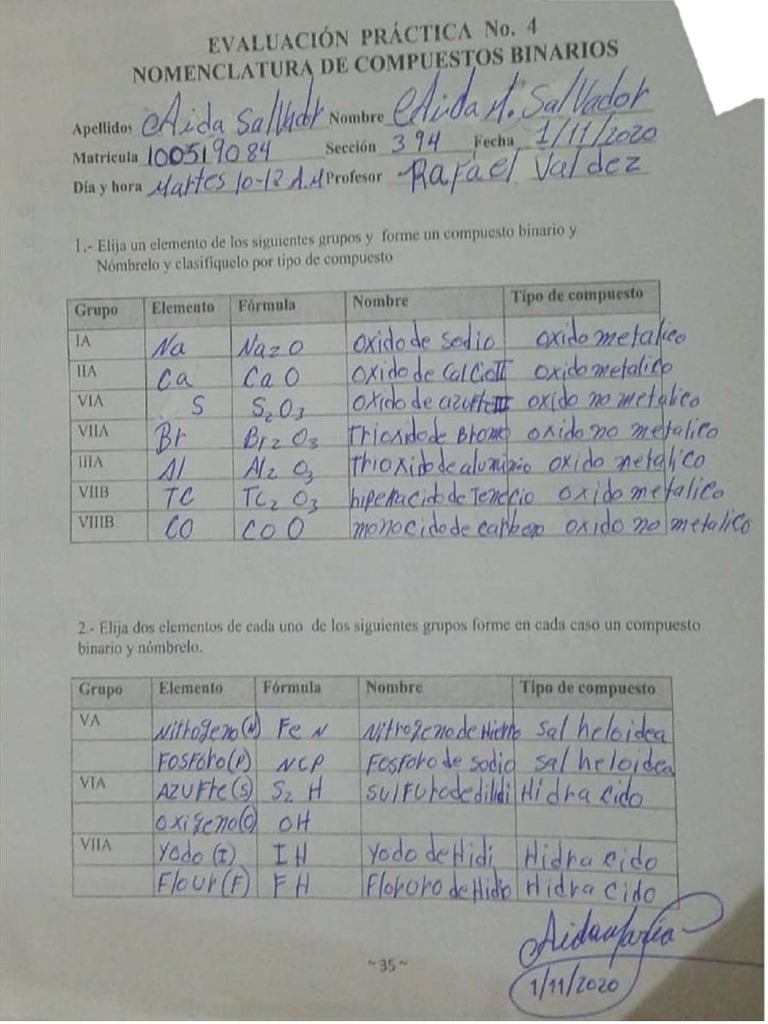 EVALUACIÓN PRÁCTICA No. 4
NOMENCLATURA DE COMPUESTOS BINARIOS
Apellidos Aida Salvador Nombre Aida M. Salvador
Matricula 100519084 Sección 394 Fecha 1/11/2020
Día y hora Martes 10-12 A.M Profesor Rafael Valdez
1.- Elija un elemento de los siguientes grupos y forme un compuesto binario y
Nómbrelo y clasifíquelo por tipo de compuesto
Grupo Elemento Fórmula Nombre Tipo de compuesto
IA Na Na2O oxido de sodio oxido metalico
IIA Ca CaO oxido de Calcio II oxido metalico
VIA S S2O3 oxido de azufre III oxido no metalico
VIIA Br Br2O3 trioxido de Bromo oxido no metalico
IIIA Al Al2O3 trioxido de aluminio oxido metalico
VIIB TC TC2O3 oxido metalico
VIIIB CO COO monocido de carbono oxido no metalico
2.- Elija dos elementos de cada uno de los siguientes grupos forme en cada caso un compuesto
binario y nómbrelo.
Grupo Elemento Fórmula Nombre Tipo de compuesto
VA Nitrogeno(N) FeN Nitrogeno de Hierro sal heloidea
Fosforo(P) NCP Fosforo de sodio sal heloidea
VIA Azufre(s) S2H Hidracido
oxigeno(O) OH
VIIA Yodo (I) IH Yodo de Hidi Hidracido
Flour(F) FH Hidracido
Aidamaria
~ 35 ~
1/11/2020